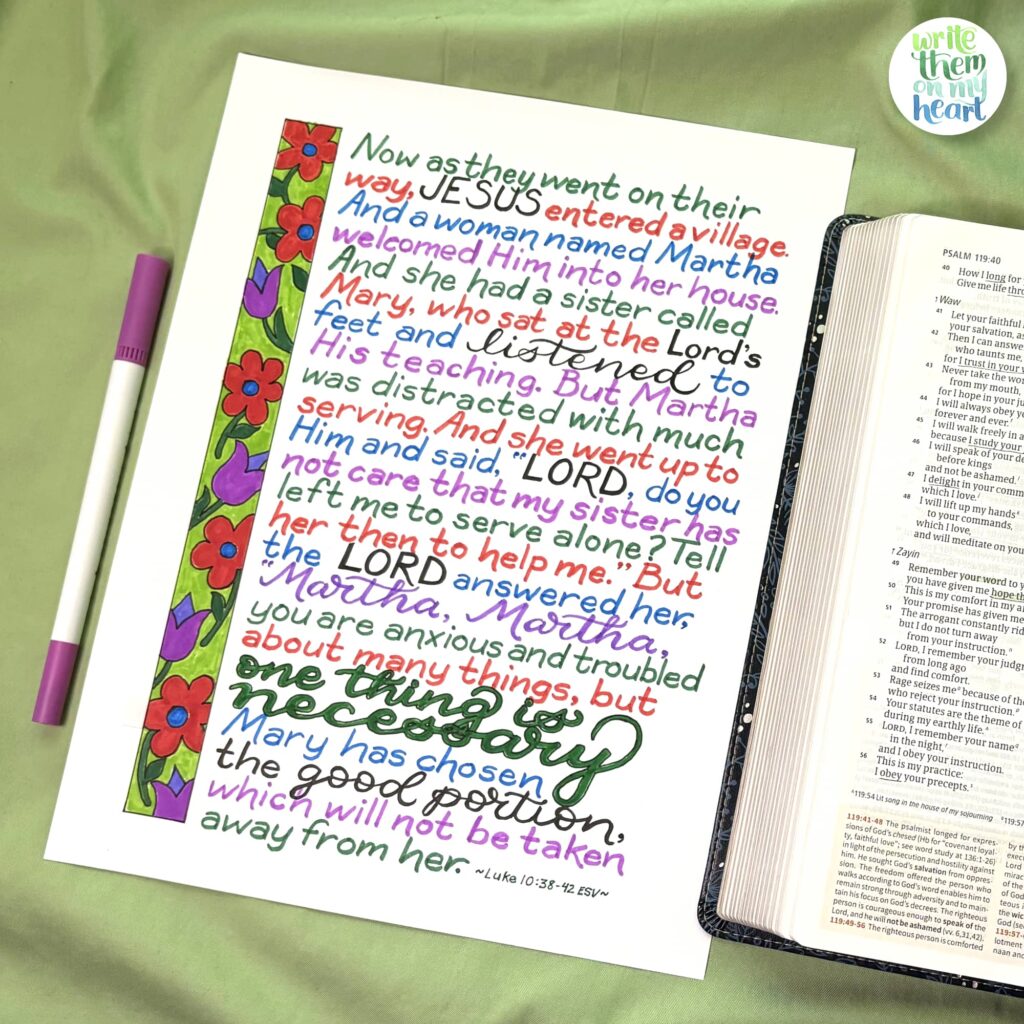 write
them
on my
heart
Now as they went on their
way, JESUS entered a village.
And a woman named Martha
welcomed Him into her house.
And she had a sister called
Mary, who sat at the Lord's
feet and listened to
His teaching. But Martha
was distracted with much
serving. And she went up to
Him and said, "LORD, do you
not care that my sister has
left me to serve alone? Tell
her then to help me." But
the LORD answered her,
"Martha, Martha,
you are anxious and troubled
about many things, but
one thing is
necessary
Mary has chosen
the good portion,
which will not be taken
away from her.
~Luke 10:38-42 ESV~
PSALM 119:40
40 How I long for
Give me life
Waw
41 Let your faithful
your salvation, as
42 Then I can answer
who taunts me,
for I trust in your
43 Never take the
from my mouth,
for I hope in your
44 I will always obey
forever and ever.
45 I will walk freely in a
because I study your
46 I will speak of your
before kings
and not be ashamed.
47 I delight in your
which I love.
48 I will lift up my hands
to your commands,
which I love,
and will meditate on your
Zayin
49 Remember your word to
you have given me hope
This is my comfort in my
Your promise has given me
51 The arrogant constantly
but I do not turn away
from your instruction.
52 LORD, I remember your
from long ago
and find comfort.
53 Rage seizes me because of the
who reject your instruction.
54 Your statutes are the theme of
during my earthly life.
55 LORD, I remember your name
in the night,
and I obey your instruction.
56 This is my practice:
I obey your precepts.
119:54 Lit song in the house of my sojourning
119:41-48 The psalmist longed for expres-
sions of God's chesed (Hb for "covenant loyal-
ty, faithful love"; see word study at 136:1-26)
in light of the persecution and hostility against
him. He sought God's salvation from oppres-
sion. The freedom offered the person who
walks according to God's word enables him to
remain strong through adversity and to main-
tain his focus on God's decrees. The righteous
person is courageous enough to speak of the
Lord, and he will not be ashamed (vv. 6,31,42).
119:49-56 The righteous person is comforted
by th